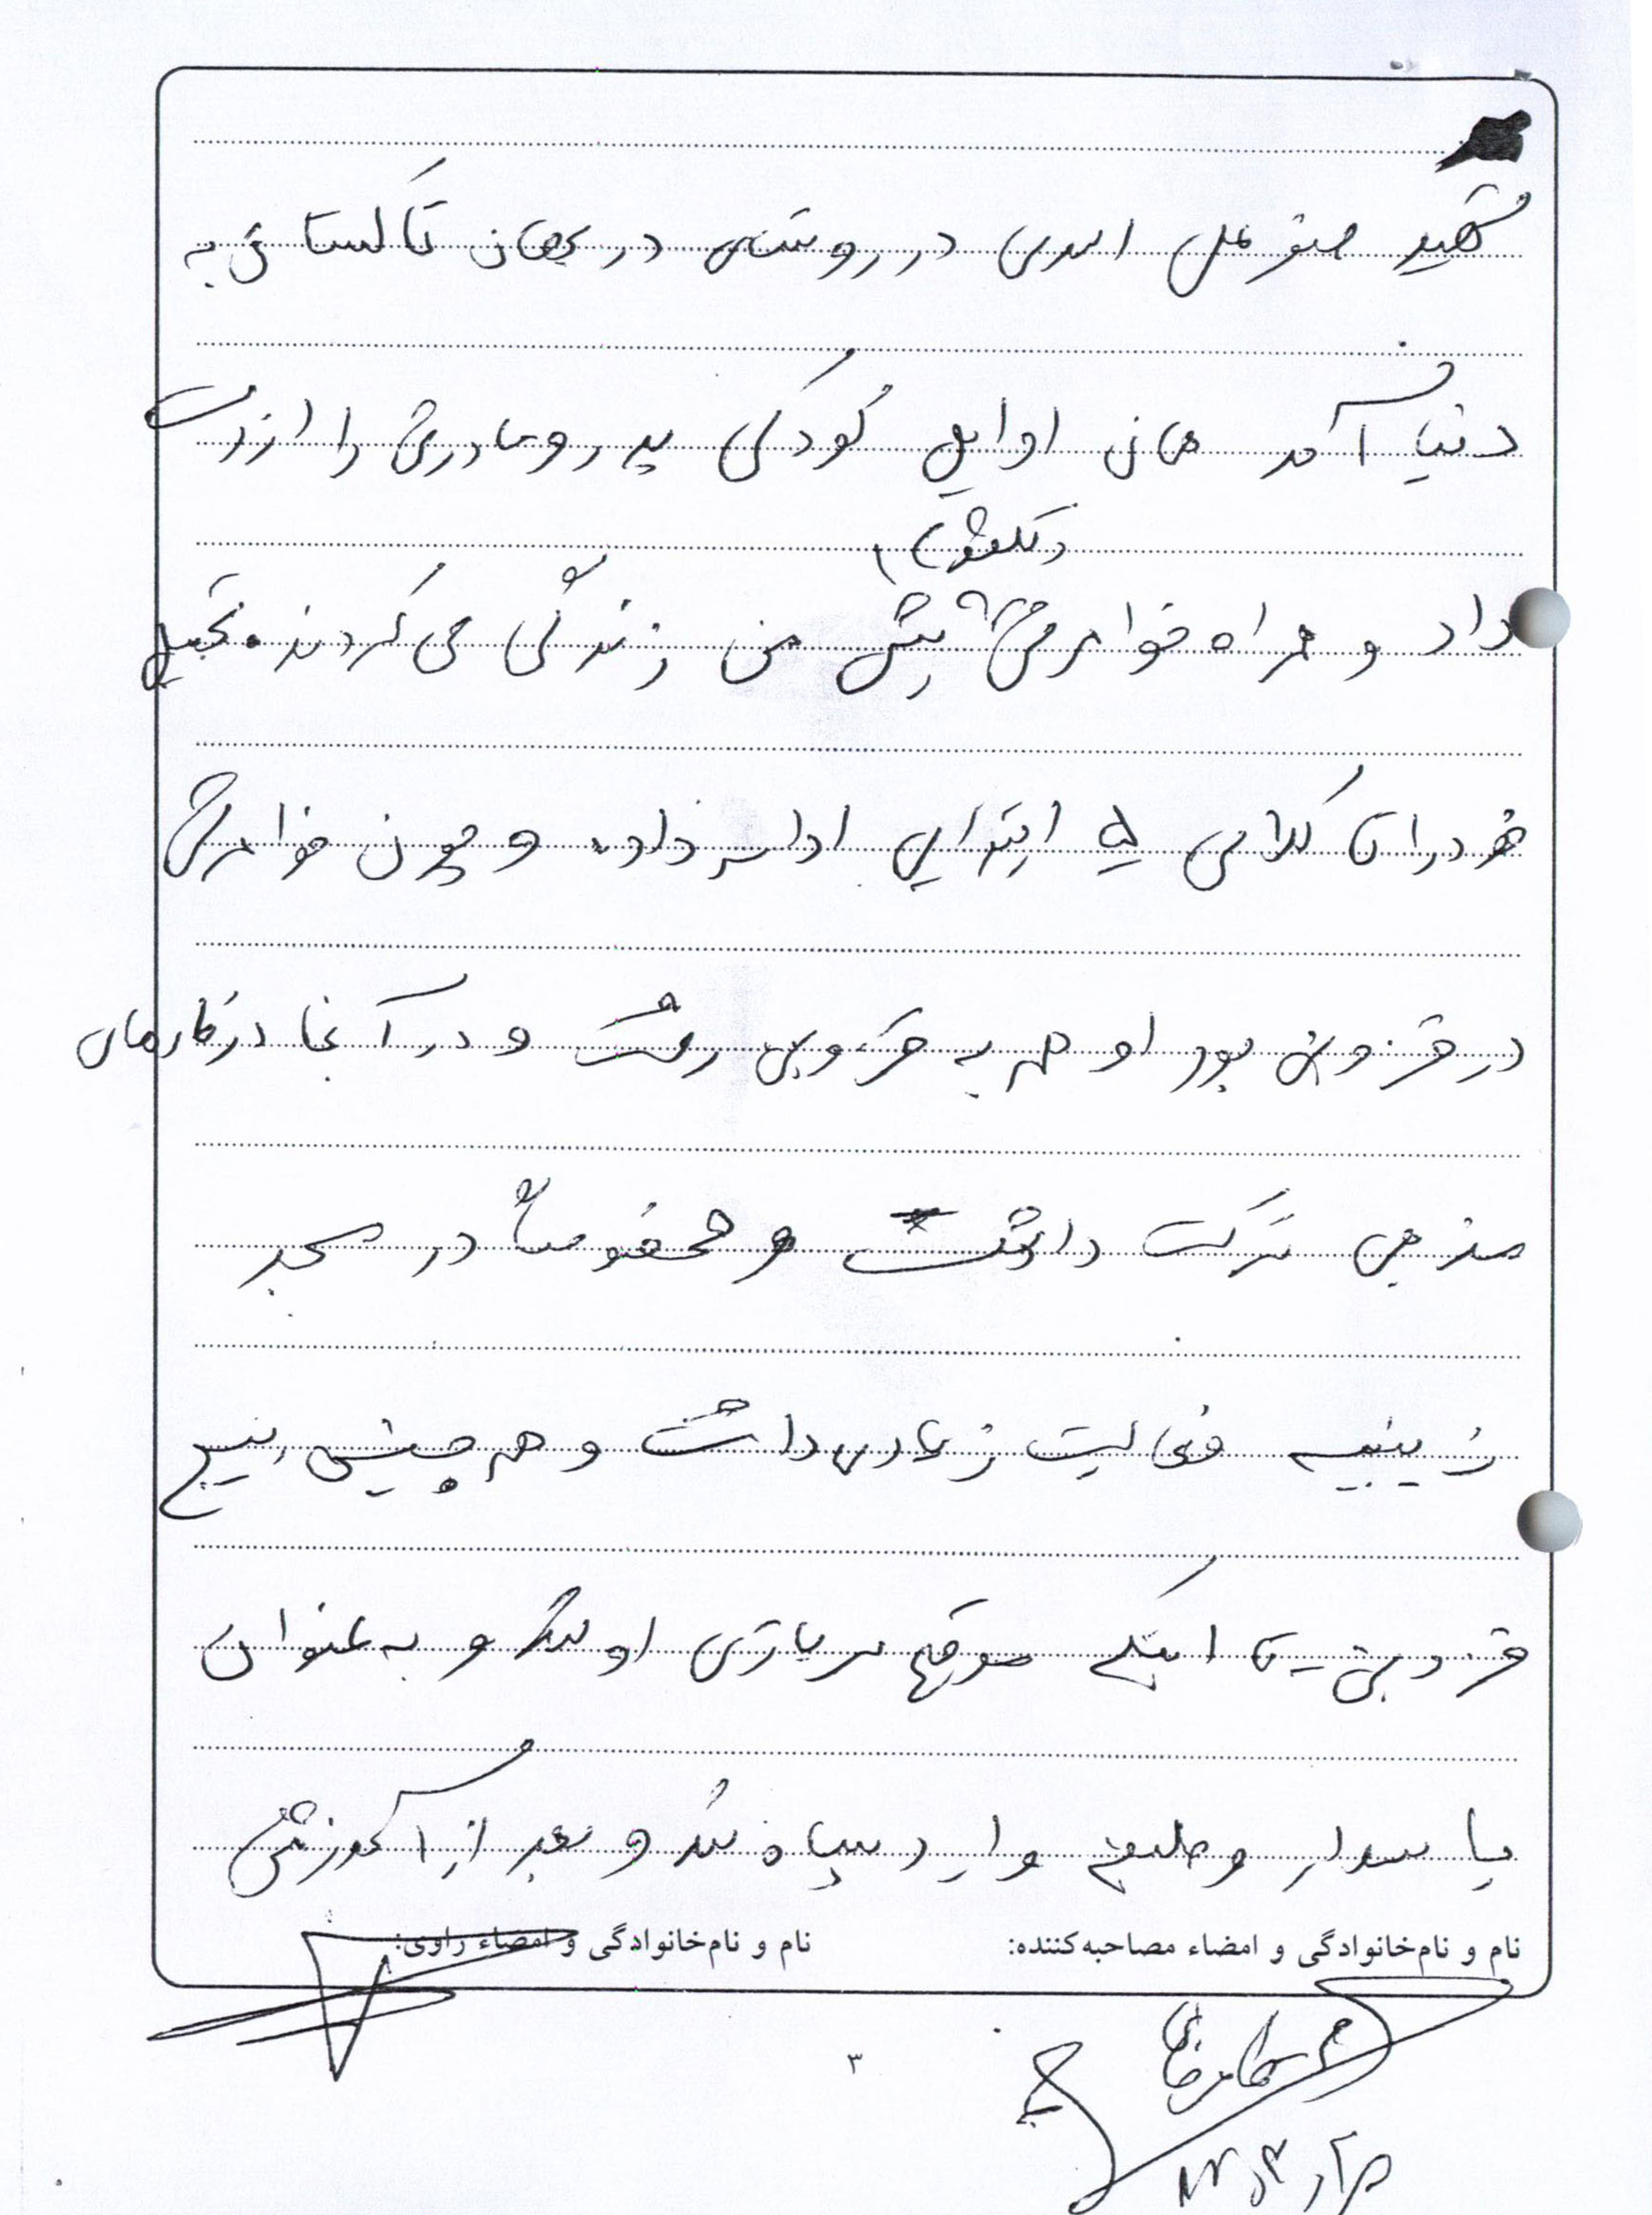 شهید صفرعلی اسدی در روستای در بجهان تاکستان به
دنیا آمد همان اوایل کودکی پدر و مادرش را از دست
داد و همراه خواهرش پیش من زندگی می‌کردند. تحصیل
خود را تا کلاس ۵ ابتدایی ادامه داد. و چون خواهرش
در قزوین بود او هم به قزوین رفت و در آنجا در کارهای
مذهبی شرکت داشت و مخصوصاً در مسجد
زینبیه فعالیت زیادی داشت و هم چنین بسیج
قزوین تا اینکه موقع سربازی او شد و به عنوان
پاسدار وظیفه وارد سپاه شد و بعد از آموزش
نام و نام‌خانوادگی و امضاء مصاحبه‌کننده: نام و نام‌خانوادگی و امضاء راوی:
۳